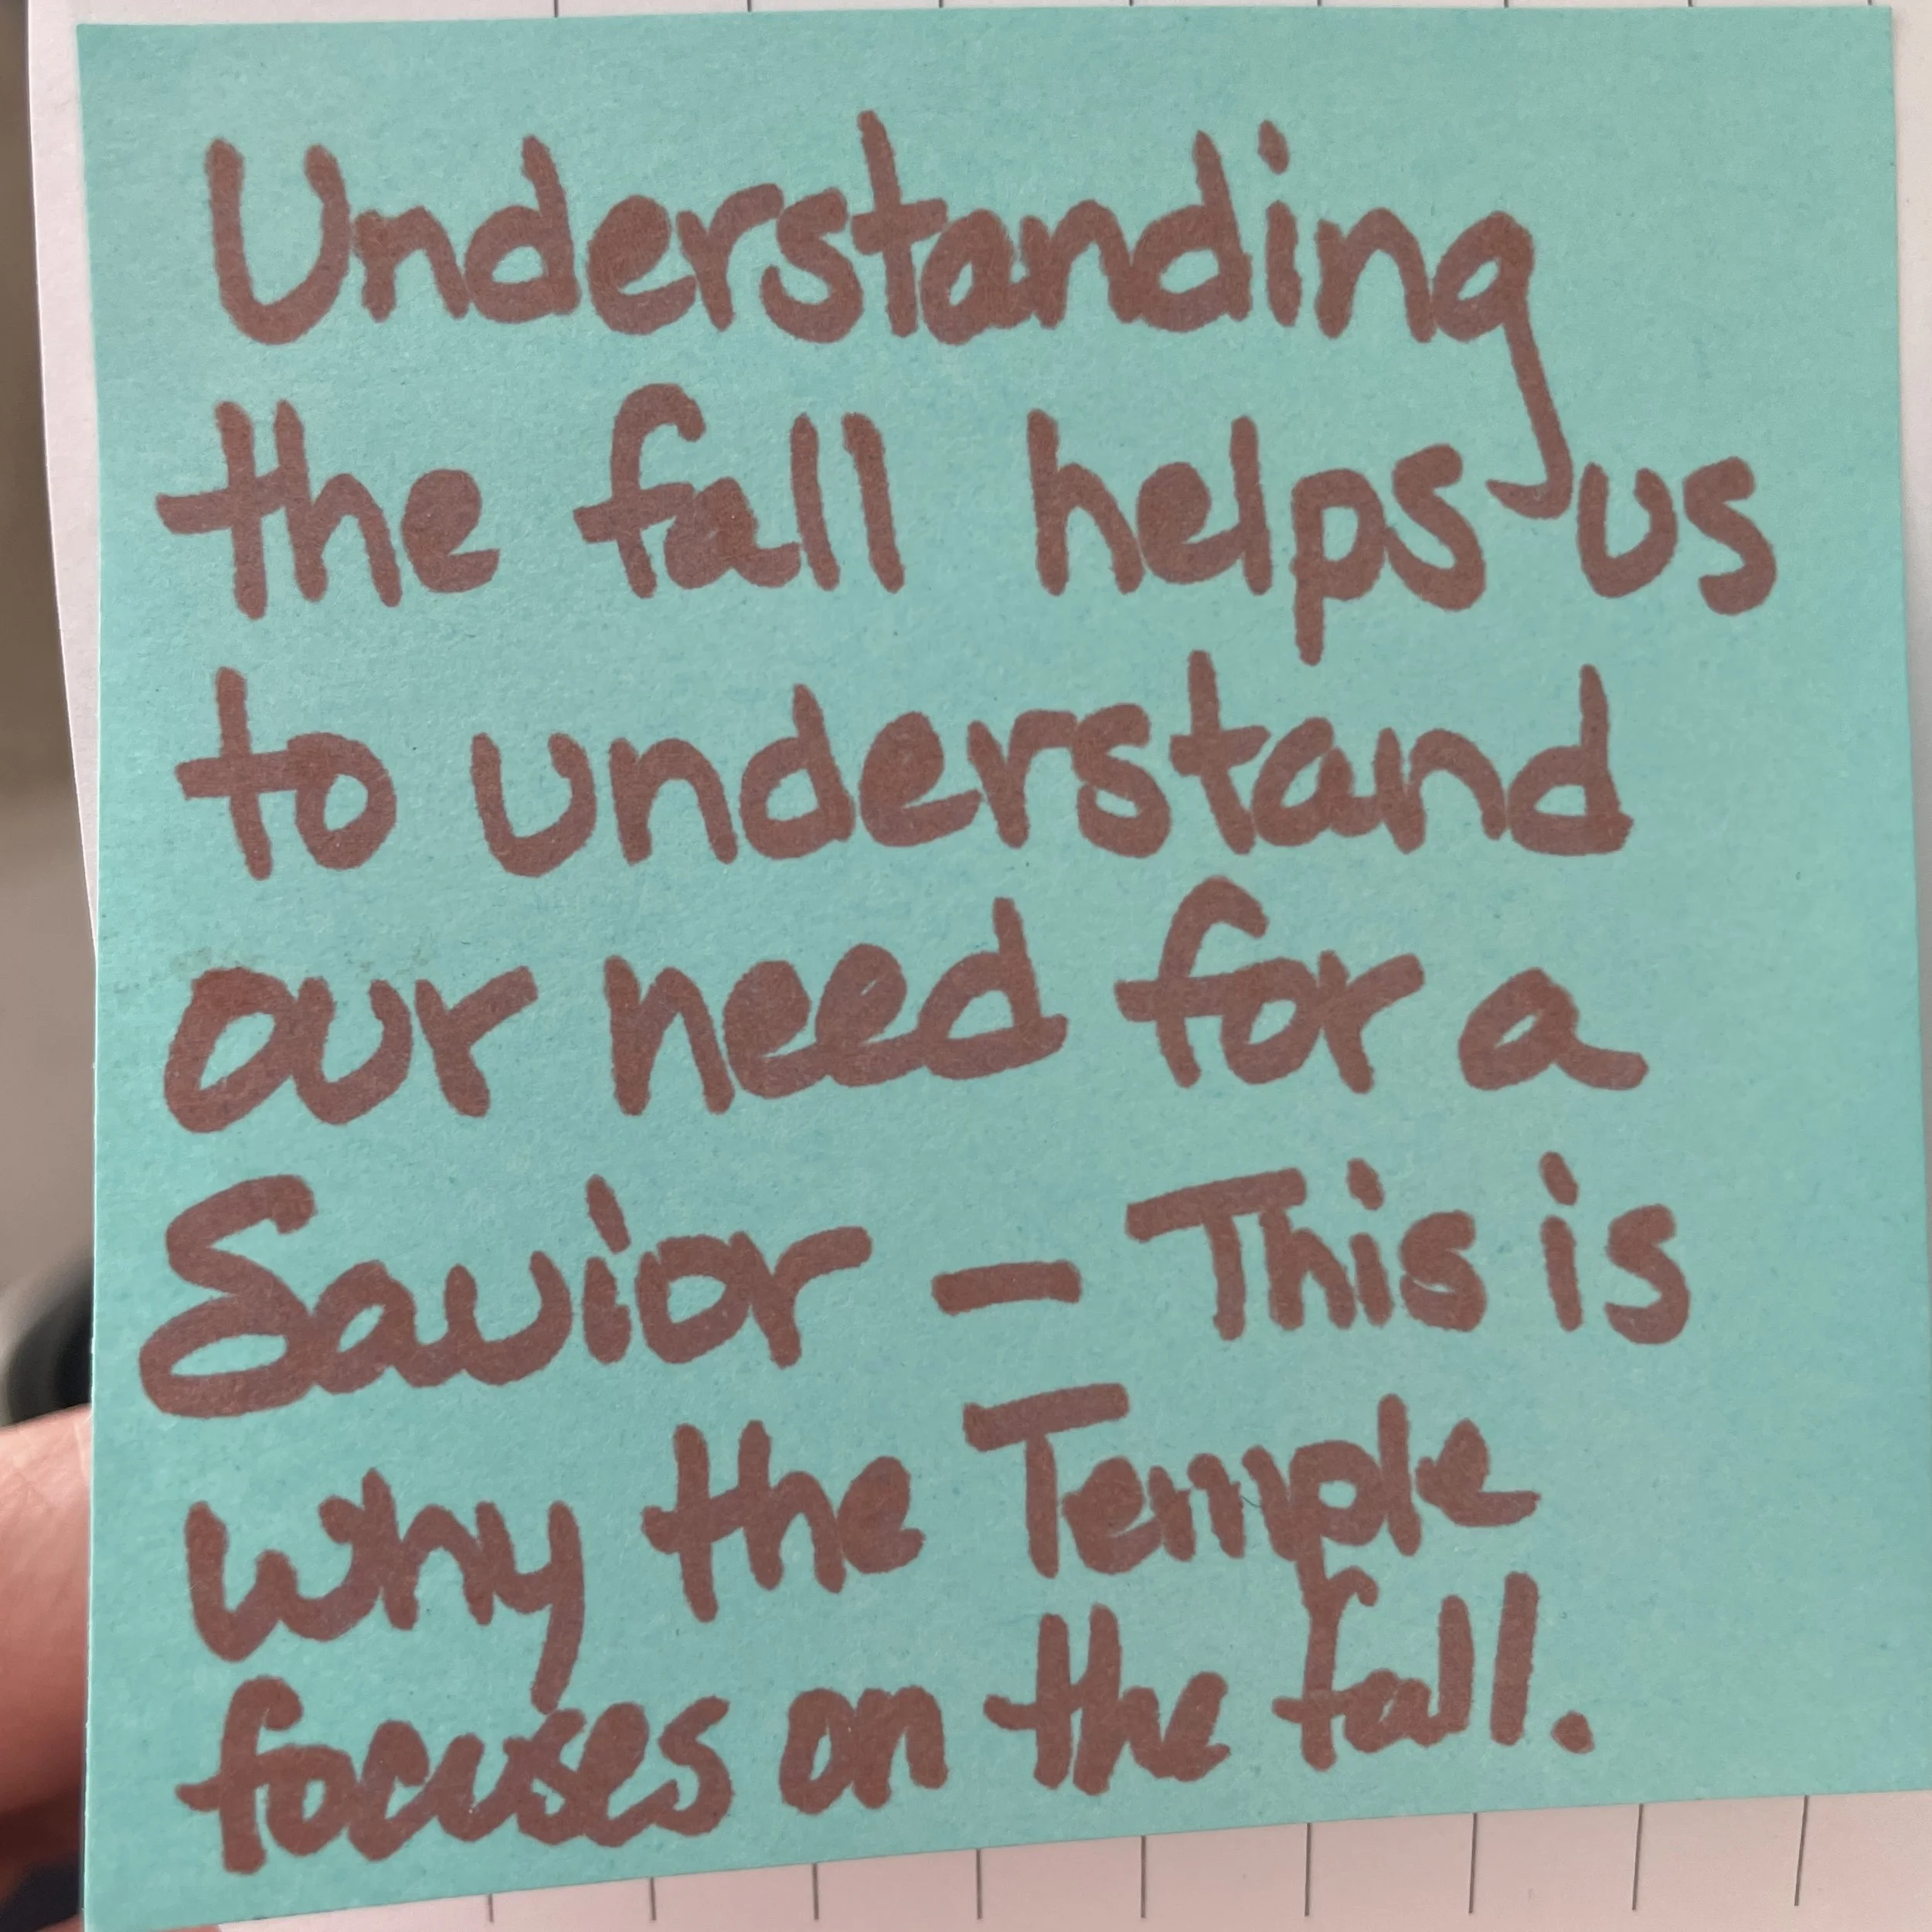 Understanding
the fall helps us
to understand
our need for a
Savior - This is
why the Temple
focuses on the fall.